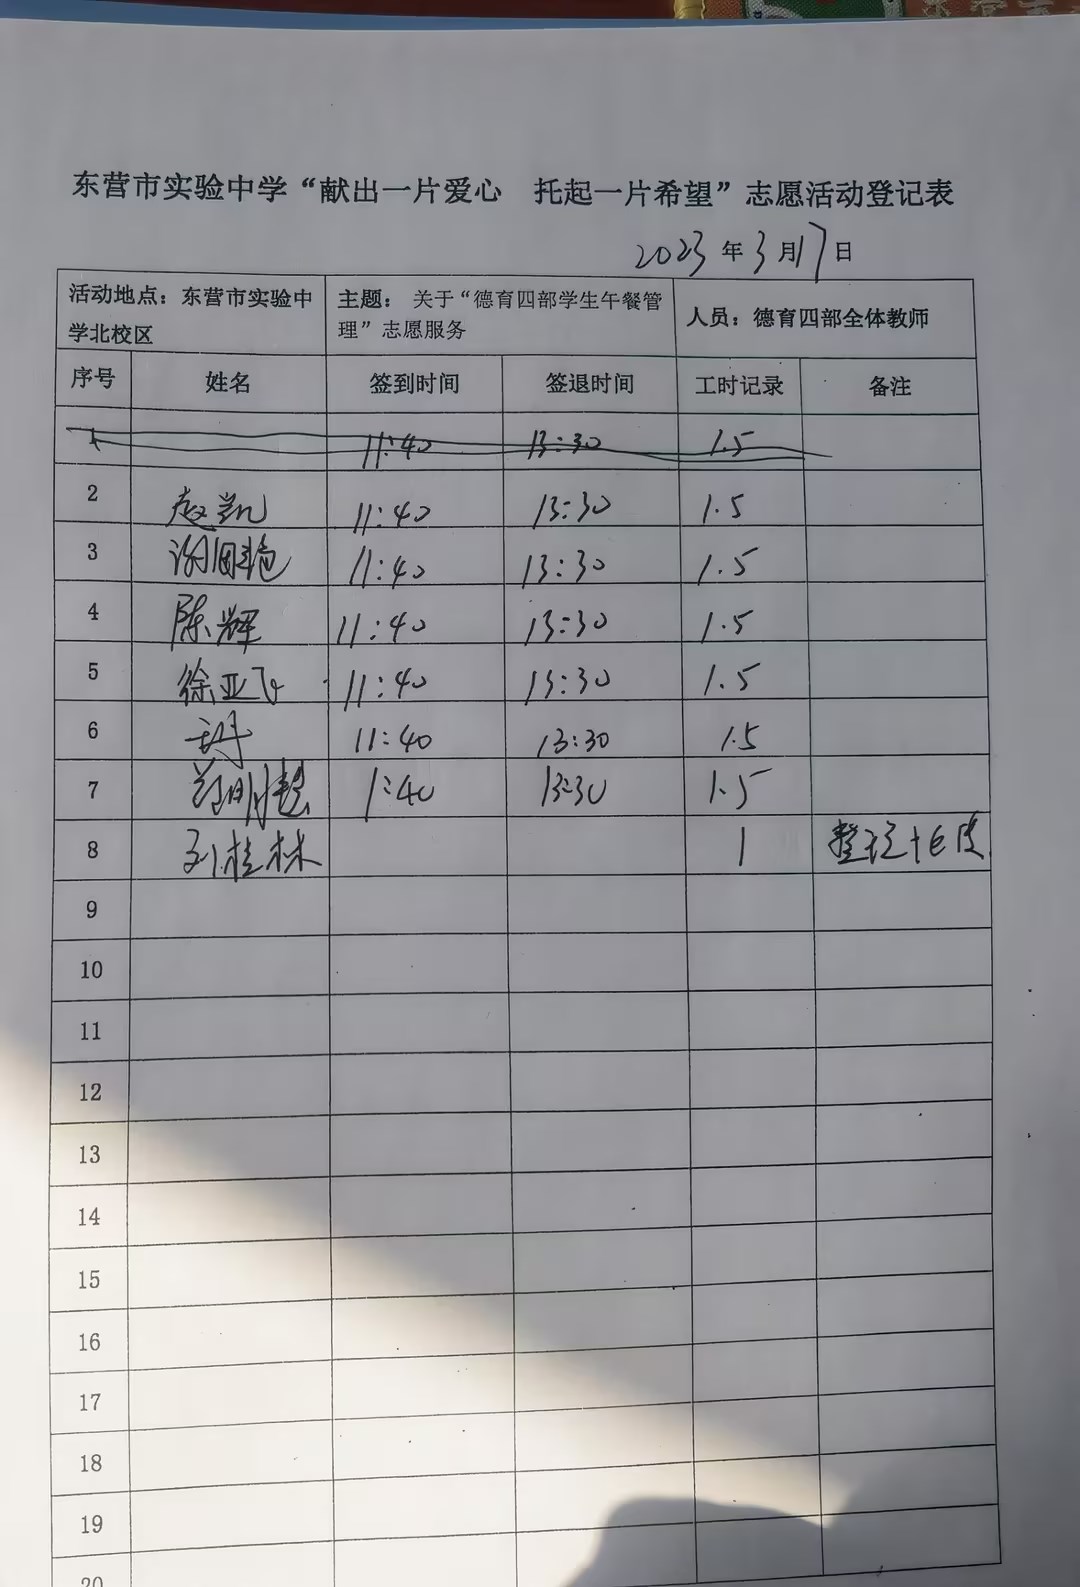 东营市实验中学“献出一片爱心 托起一片希望”志愿活动登记表
2023年3月17日
活动地点：东营市实验中学北校区 主题：关于“德育四部学生午餐管理”志愿服务 人员：德育四部全体教师
序号 姓名 签到时间 签退时间 工时记录 备注
1 11:40 13:30 1.5
2 赵凯 11:40 13:30 1.5
3 11:40 13:30 1.5
4 陈辉 11:40 13:30 1.5
5 徐亚飞 11:40 13:30 1.5
6 11:40 13:30 1.5
7 1:40 13:30 1.5
8 刘桂林 1 整理
9
10
11
12
13
14
15
16
17
18
19
20